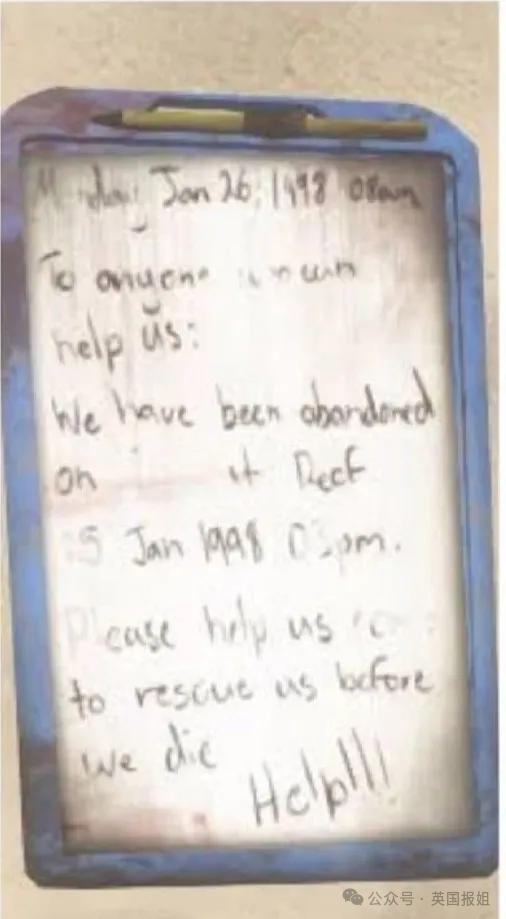 Monday Jan 26; 1998 08am
To anyone can
help us:
We have been abandoned
on Reef
Jan 1998 03pm.
Please help us
to rescue us before
we die
Help!!!
公众号 · 英国报姐